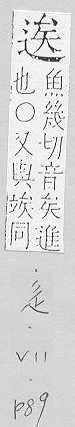 逘
魚幾切音矣進
也○又與竢同
辵
VII
p89